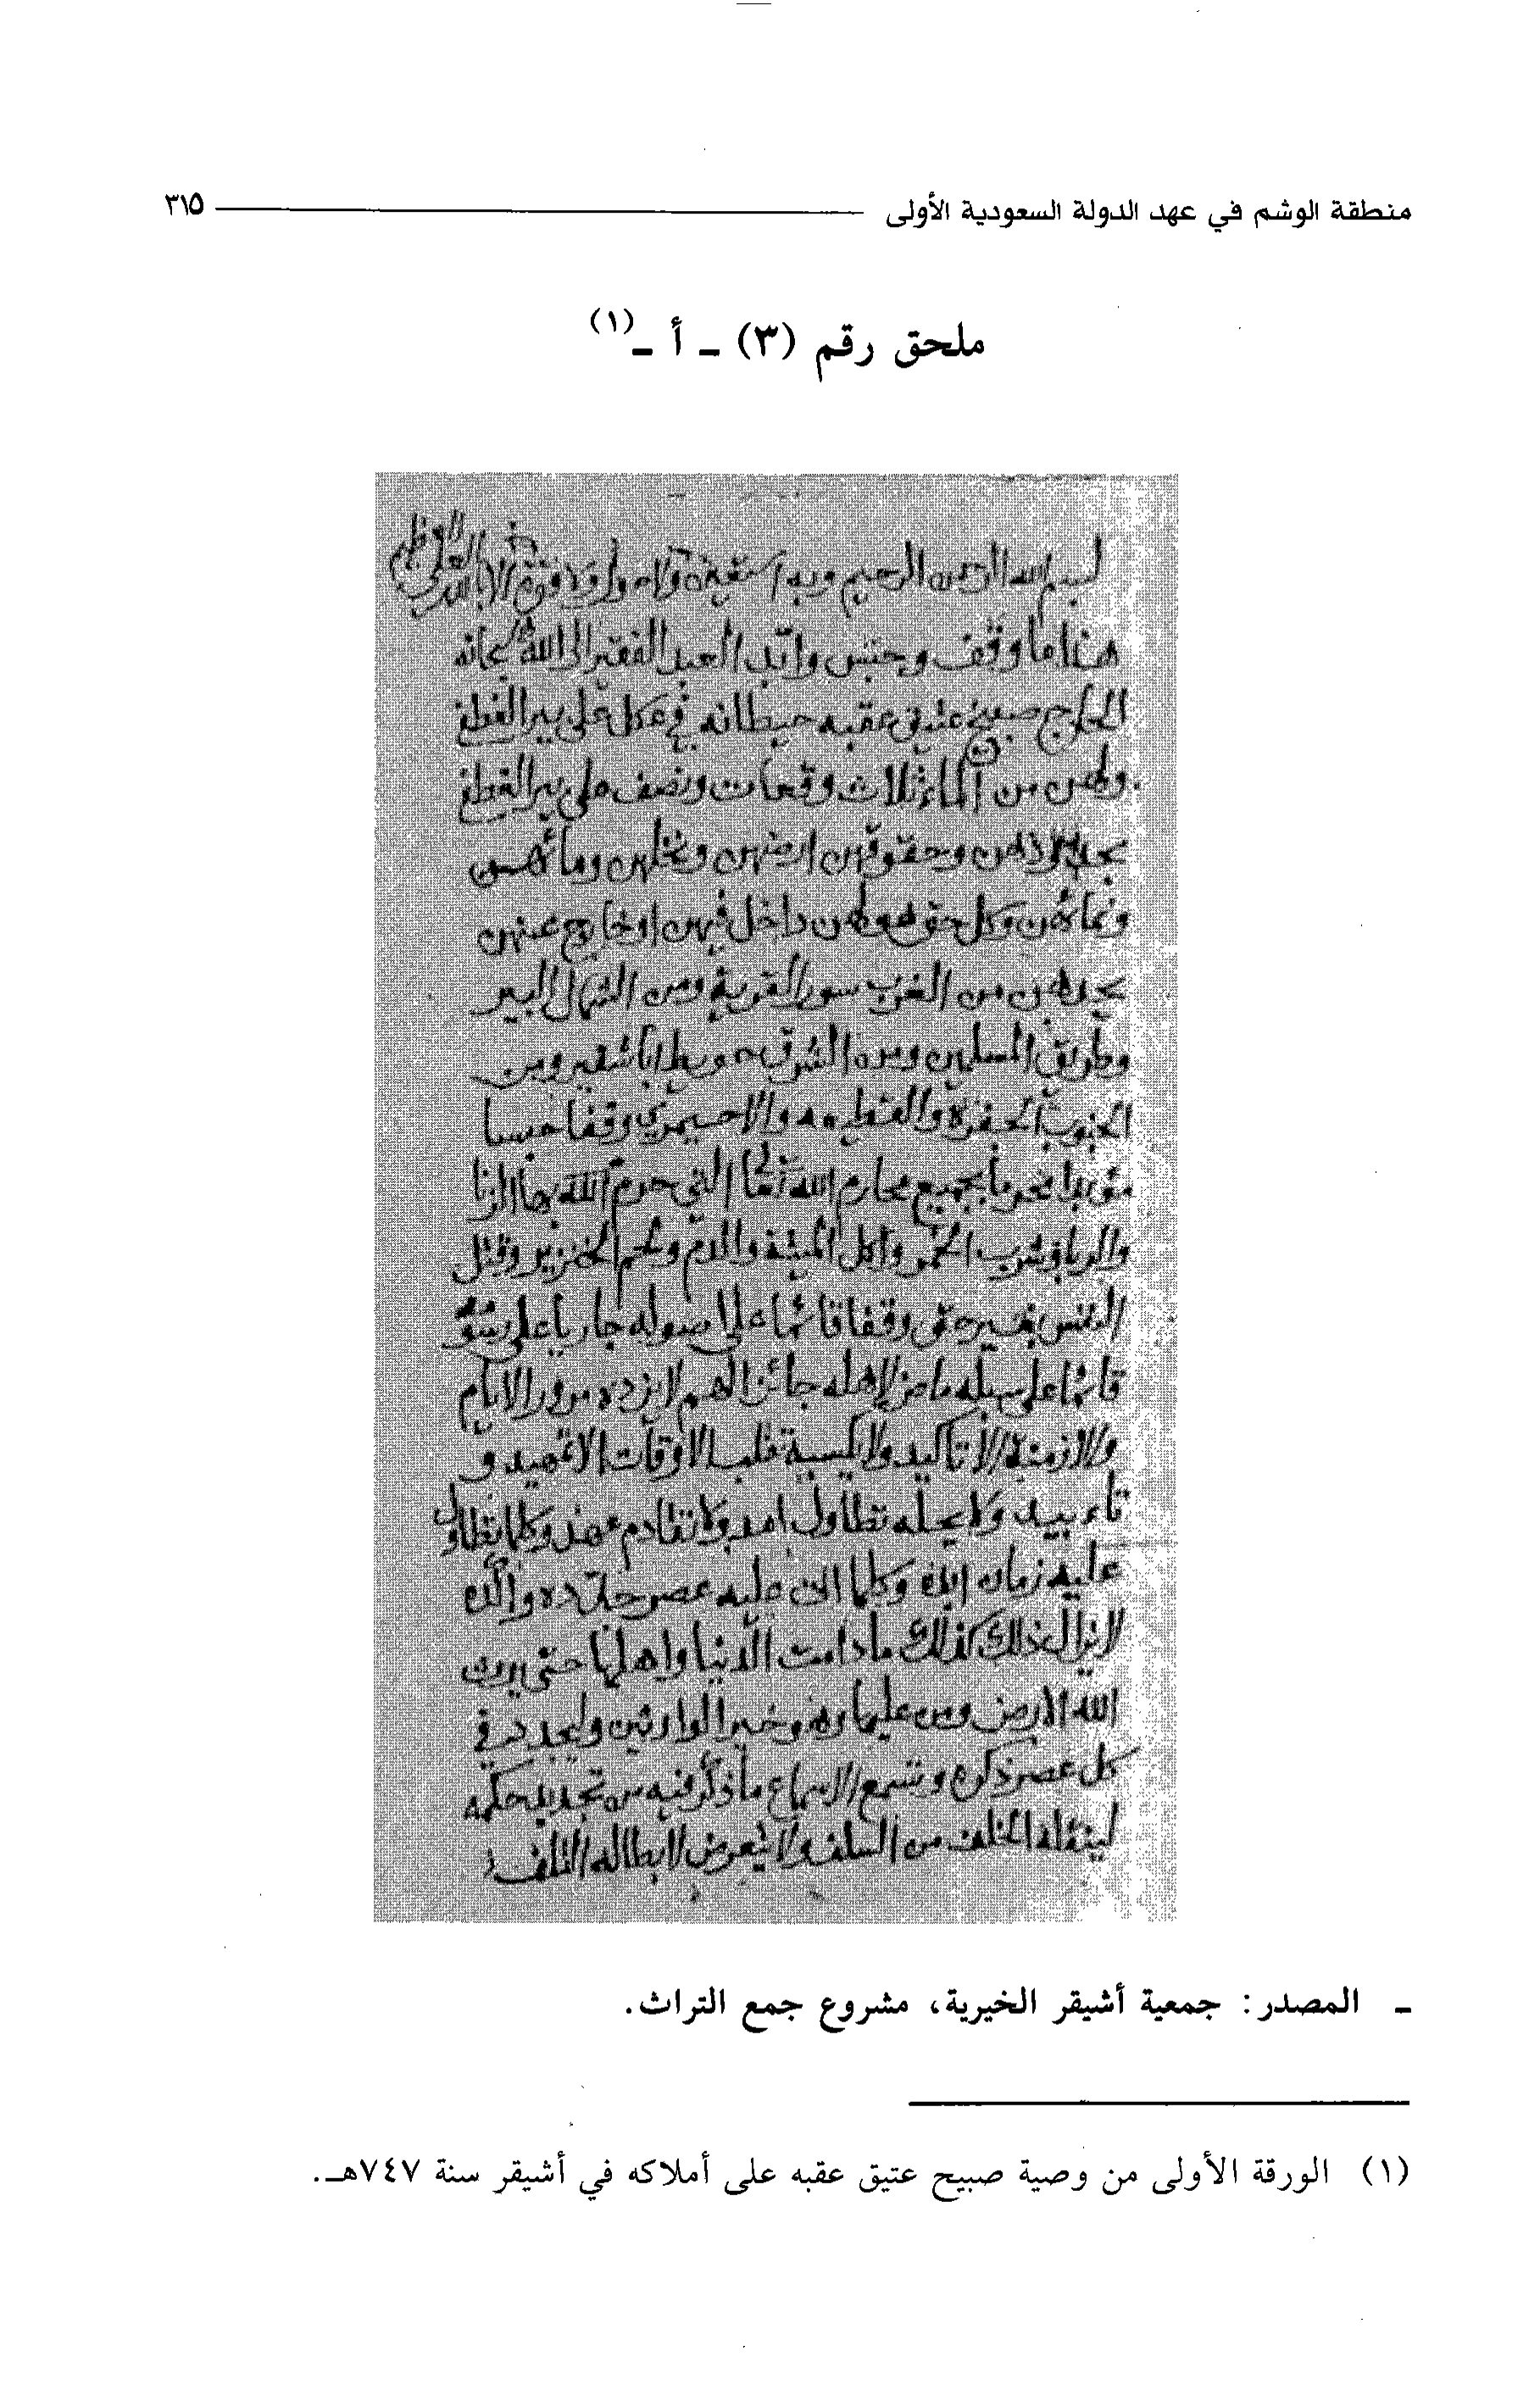 منطقة الوشم في عهد الدولة السعودية الأولى ٣١٥
ملحق رقم (٣) - أ -(١)
بسم الله الرحمن الرحيم وبه استعين ولا حول ولا قوة الا بالله العلي العظيم
هذا ما وقف وحبس وابد العبد الفقير الى الله سبحانه
الحاج صبيح عتيق عقبه حيطانه في عكل على بير الغطفا
ولهن من الماء ثلاث وقعات ونصف على بير الغطفا
بحدودهن وحقوقهن ارضهن ونخلهن ومائهن
ونمائهن وكل حق هو لهن داخل فيهن او خارج عنهن
يحدهن من الغرب سور القرية ومن الشمال البير
وطريق المسلمين ومن الشرق حويط ابا شقير ومن
الجنوب الحفرة والاحيمري وقفا حبسا
مؤبدا محرما بجميع محارم الله تعالى التي حرم الله بها الزنا
والربا وشرب الخمر واكل الميتة والدم ولحم الخنزير وقتل
النفس بغير حق وقفا قائما على اصوله جاريا على
قائما على سبله ماض لاهله جائز لهم لا يزده مرور الايام
والازمنة الا تاكيد ولا يكسبه تقلب الاوقات الا تمهيد و
تاءبيد ولا يحله تطاول امد ولا تقادم عهد وكلما تطاول
عليه زمان ابده وكلما اتى عليه عصر جدده واكده
لا يزال ذلك كذلك ما دامت الدنيا واهلها حتى يرث
الله الارض ومن عليها وهو خير الوارثين وليجدد في
كل عصر ذكره وتسمع الاسماع ما ذكر فيه من تجديد حكمه
الخلف من السلف ولا يتعرض لابطاله التلف
- المصدر: جمعية أشيقر الخيرية، مشروع جمع التراث.
(١) الورقة الأولى من وصية صبيح عتيق عقبه على أملاكه في أشيقر سنة ٧٤٧هـ.